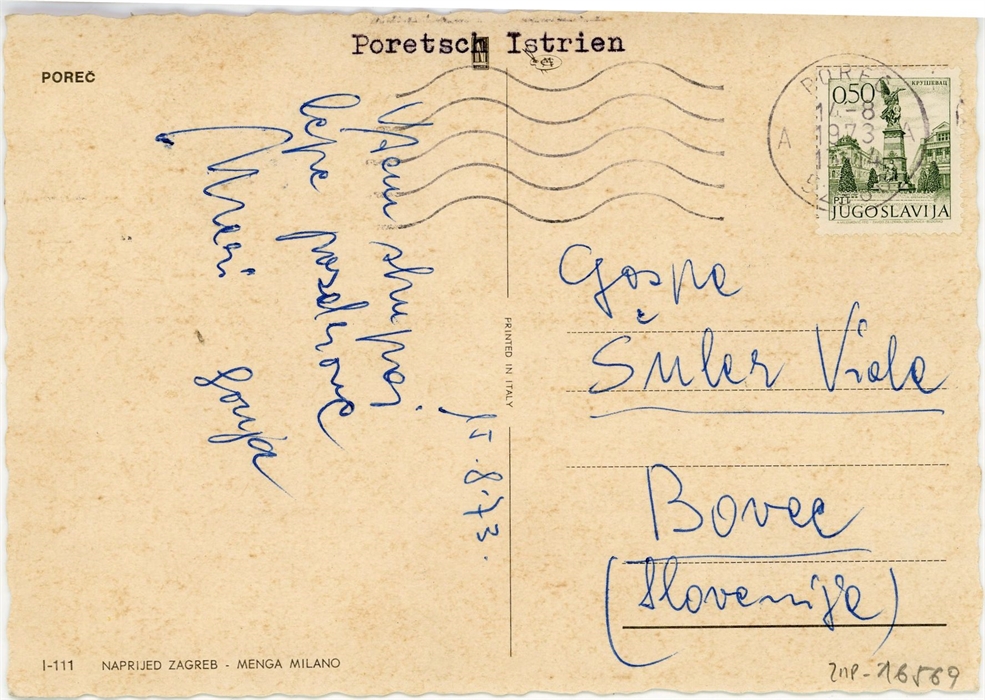 Poretsch Istrien
POREČ
Vsem skupaj
lepe pozdrave
Meri
Sonja
15.8.73.
PRINTED IN ITALY
POREČ
1973
A A
0,50
КРУШЕВАЦ
PTT
JUGOSLAVIJA
Gospa
Šuler Vida
Bovec
(Slovenija)
I-111 NAPRIJED ZAGREB - MENGA MILANO
ZMP-16569